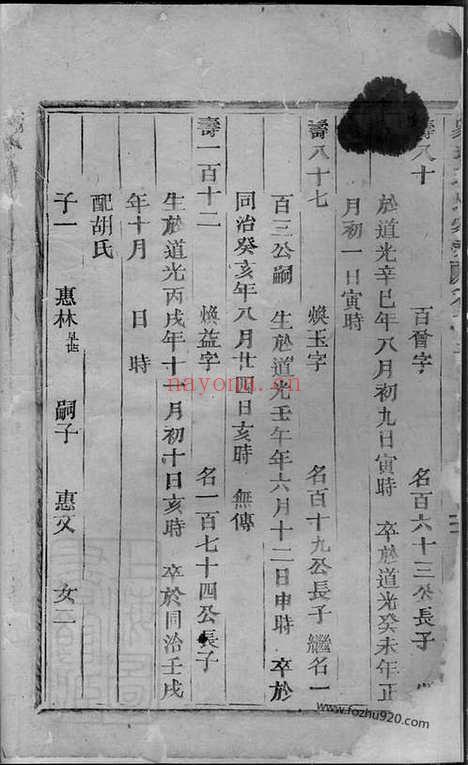 壽八十 百晉字 名百六十三公長子
於道光辛巳年八月初九日寅時 卒於道光癸未年正
月初一日寅時
壽八十七 煥玉字 名百十九公長子 繼名一
百三公嗣 生於道光壬午年六月十二日申時 卒於
同治癸亥年八月廿四日亥時 無傳
壽一百十二 煥益字 名一百七十四公長子
生於道光丙戌年十一月初十日亥時 卒於同治壬戌
年十月 日 時
配胡氏
子一 惠林早世 嗣子 惠文 女二
nayona.cn
www.fozhu920.com